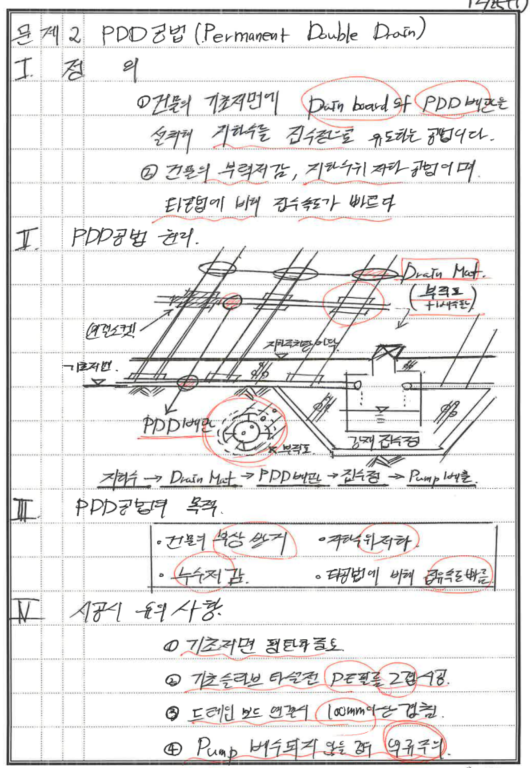 문제 2 PDD공법 (Permanent Double Drain)
I. 정 의
① 건물의 기초저면에 Drain board와 PDD배관을
설치해 지하수를 집수정으로 유도하는 공법이다.
② 건물의 부력저감, 지하수위 저하 공법이며
타공법에 비해 집수속도가 빠르다
II. PDD공법 원리.
Drain Mat.
(부직포
연결소켓
기초저면
PDD배관
부직포
강재 집수정
지하수 → Drain Mat. → PDD배관 → 집수정 → Pump배출.
III. PDD공법의 목적.
· 건물의 부상 방지 · 지하수위저하
· 누수저감. · 타공법에 비해 집수속도빠름
IV 시공시 유의사항.
① 기초저면 평탄유도
② 기초슬라브 타설전 PE필름 2겹시공.
③ 드레인 보드 연결시 100mm이상 겹침.
④ Pump 배수되지 않을 경우 역류주의.